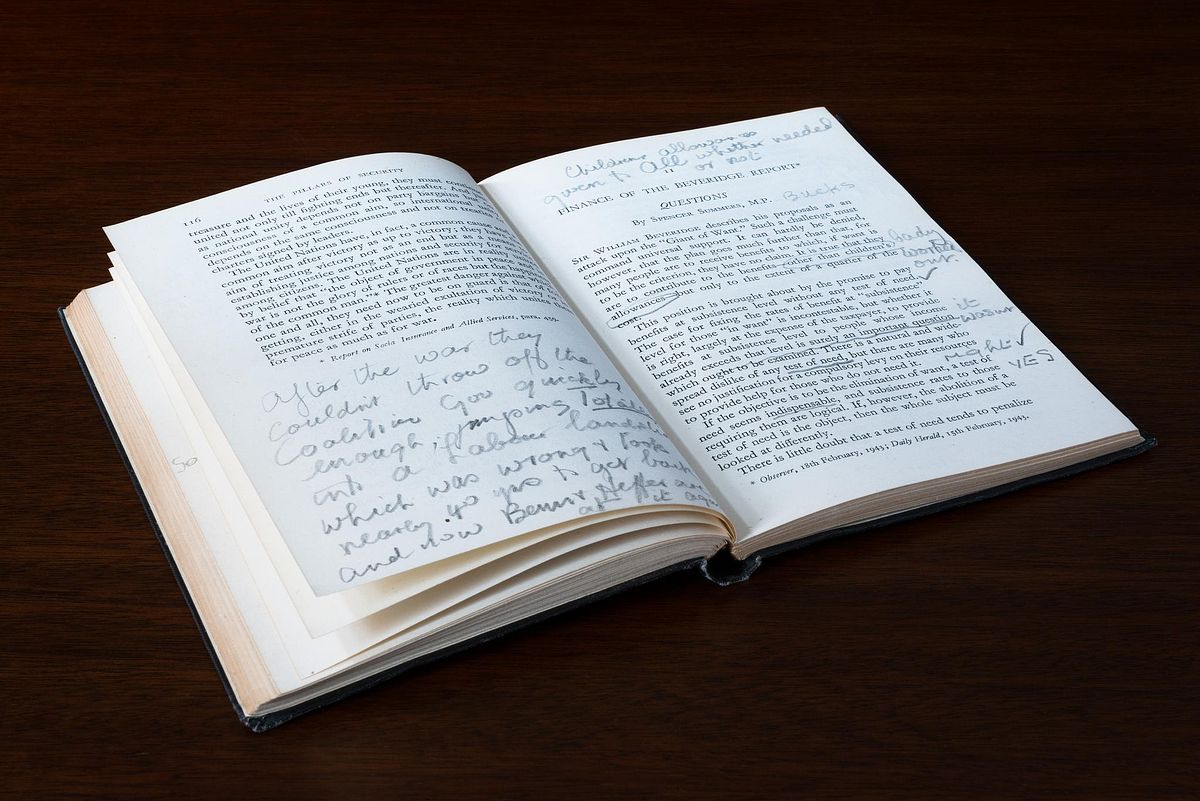 116 THE PILLARS OF SECURITY
treasure and the lives of their young, they must
united not only till fighting ends but thereafter. And
as national unity depends not on party bargains but
consciousness of a common aim, so international
depends on the same consciousness and not on treaties
charters signed by leaders.
The United Nations have, in fact, a common cause
common aim after victory as up to victory; they
regarding victory not as an end but as a means
establishing justice among nations and security for
among citizens. The United Nations are in reality
by belief that the object of government in peace
war is not the glory of rulers or of races but the happiness
of the common man."* The greatest danger against
one and all, they need now to be on guard is that of
getting, either in the wearied exultation of victory
premature strife of parties, the reality which unites
for peace as much as for war.
* Report on Social Insurance and Allied Services, para. 459.
after the war they
couldn't throw off the
Coalition Gov quickly
enough, jumping
into a Labour
which was wrong & took
nearly 40 yrs to get back
and now Benn Heffer
at it
So
Childrens allowances
given to All whether needed
or not
FINANCE OF THE BEVERIDGE REPORT*
QUESTIONS
By SPENCER SUMMERS, M.P. Bucks
SIR WILLIAM BEVERIDGE describes his proposals as an
attack upon the "Giant of Want." Such a challenge must
command universal support. It can hardly be denied,
however, that the plan goes much further than that, for
many people are to receive benefits to which, if want is
to be the criterion, they have no claim. It is true that they
are to contribute to benefits other than children's
allowances but only to the extent of a quarter of the
cost.
badly
worked
out
This position is brought about by the promise to pay
benefits at subsistence level without any test of need.
The case for fixing the rates of benefit at "subsistence"
level for those "in want" is incontestable, but whether it
is right, largely at the expense of the taxpayer, to provide
benefits at subsistence level to people whose income
already exceeds that level is surely an important question
which ought to be examined. There is a natural and wide-
spread dislike of any test of need, but there are many who
see no justification for a compulsory levy on their resources
to provide help for those who do not need it.
it
wasn't
right
YES
If the objective is to be elimination of want, a test of
need seems indispensable, and subsistence rates to those
requiring them are logical. If, however, the abolition of a
test of need is the object, then the whole subject must be
looked at differently.
There is little doubt that a test of need tends to penalize
* Observer, 18th February, 1943; Daily Herald, 15th February, 1943.